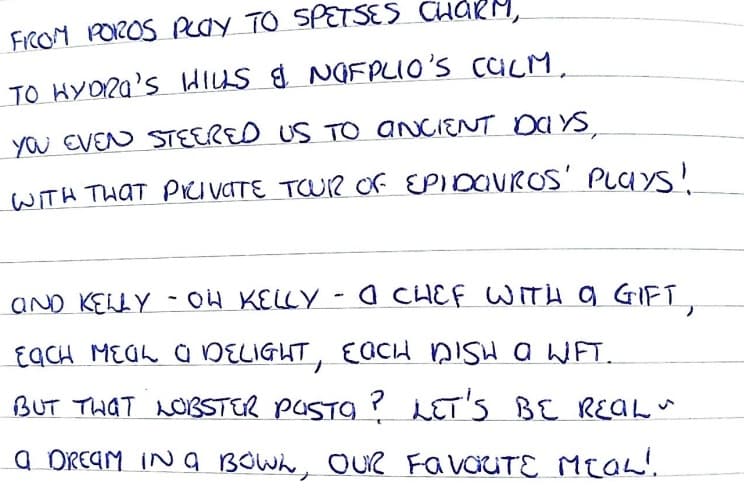 FROM POROS PLAY TO SPETSES CHARM,
TO HYDRA'S HILLS & NAFPLIO'S CALM,
YOU EVEN STEERED US TO ANCIENT DAYS,
WITH THAT PRIVATE TOUR OF EPIDAVROS' PLAYS!
AND KELLY - OH KELLY - A CHEF WITH A GIFT,
EACH MEAL A DELIGHT, EACH DISH A LIFT.
BUT THAT LOBSTER PASTA? LET'S BE REAL ~
A DREAM IN A BOWL, OUR FAVORITE MEAL!